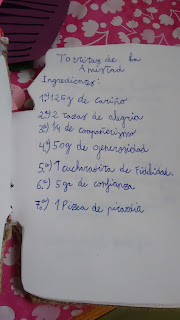 Tortitas de la
Amistad
Ingredientes:
1º) 125 g de cariño
2º) 2 tazas de alegría
3º) 1/4 de compañerismo
4º) 50 g de generosidad
5º) 1 cucharadita de Fidelidad.
6º) 5 gr de confianza
7º) 1 Pizca de picardía